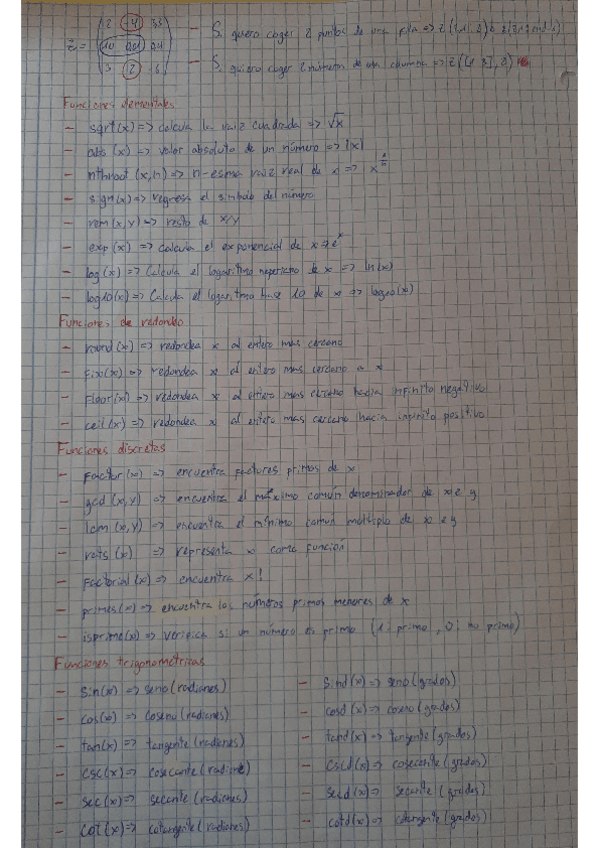 2 -4 3,5
z = 10 0,01 0,4
3 2 -6
— Si quiero coger 2 puntos de una fila => z(
— Si quiero coger 2 números de una columna => z(
Funciones elementales
— sqrt(x) => calcula la raiz cuadrada => √x
— abs (x) => valor absoluto de un número => |x|
— nthroot (x,n) => n-esma raiz real de x => x
— sign(x) => regresa el simbolo del número
— rem(x,y) => resto de x/y
— exp(x) => calcula el exponencial de x => eˣ
— log(x) => Calcula el logaritmo neperiano de x => ln(x)
— log10(x) => Calcula el logaritmo base 10 de x => log10(x)
Funciones de redondeo
— round(x) => redondea x al entero mas cercano
— fix(x) => redondea x al entero mas cercano a x
— floor(x) => redondea x al entero mas cercano hacia infinito negativo
— ceil(x) => redondea x al entero mas cercano hacia infinito positivo
Funciones discretas
— factor(x) => encuentra factores primos de x
— gcd(x,y) => encuentra el máximo común denominador de x e y
— lcm(x,y) => encuentra el mínimo comun multiplo de x e y
— rats(x) => representa x como función
— factorial(x) => encuentra x!
— primes(x) => encuentra los números primos menores de x
— isprime(x) => verifica si un número es primo (1: primo, 0: no primo)
Funciones trigonometricas
— sin(x) => seno(radianes) — sind(x) => seno(grados)
— cos(x) => coseno(radianes) — cosd(x) => coseno(grados)
— tan(x) => tangente(radianes) — tand(x) => tangente(grados)
— csc(x) => cosecante(radianes) — cscd(x) => cosecante(grados)
— sec(x) => secante(radianes) — secd(x) => secante(grados)
— cot(x) => cotangente(radianes) — cotd(x) => cotangente(grados)